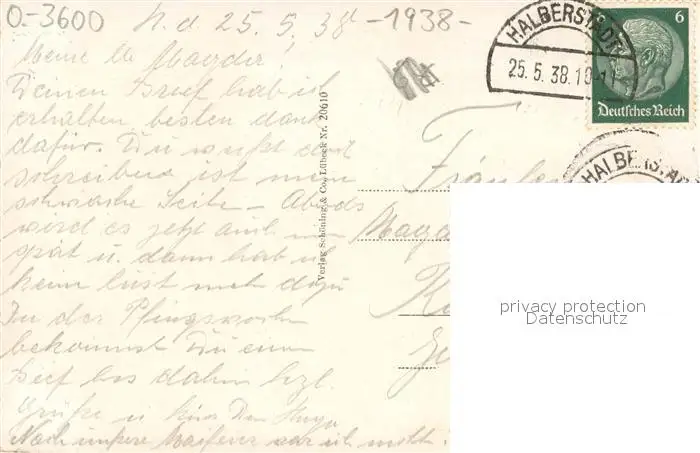 O-3600 H. d. 25. 5. 38 -1938-
Meine lb Magda!
Deinen Brief hab ich
erhalten besten dank
dafür. Du weißt doch
schreiben ist meine
schwache Seite - Abends
wird es jetzt auch immer
spät u. dann hab ich
keine lust mehr dazu
In der Pfingstwoche
bekommst Du einen
Brief bis dahin hzl.
Grüße u Küsse Dein
Nach unsere war ich nicht
Verlag Schöning & Co., Lübeck Nr. 20610
HALBERSTADT
25.5.38.10-11
6
Deutsches Reich
HALBERSTA
Fräulein
Magda
privacy protection
Datenschutz